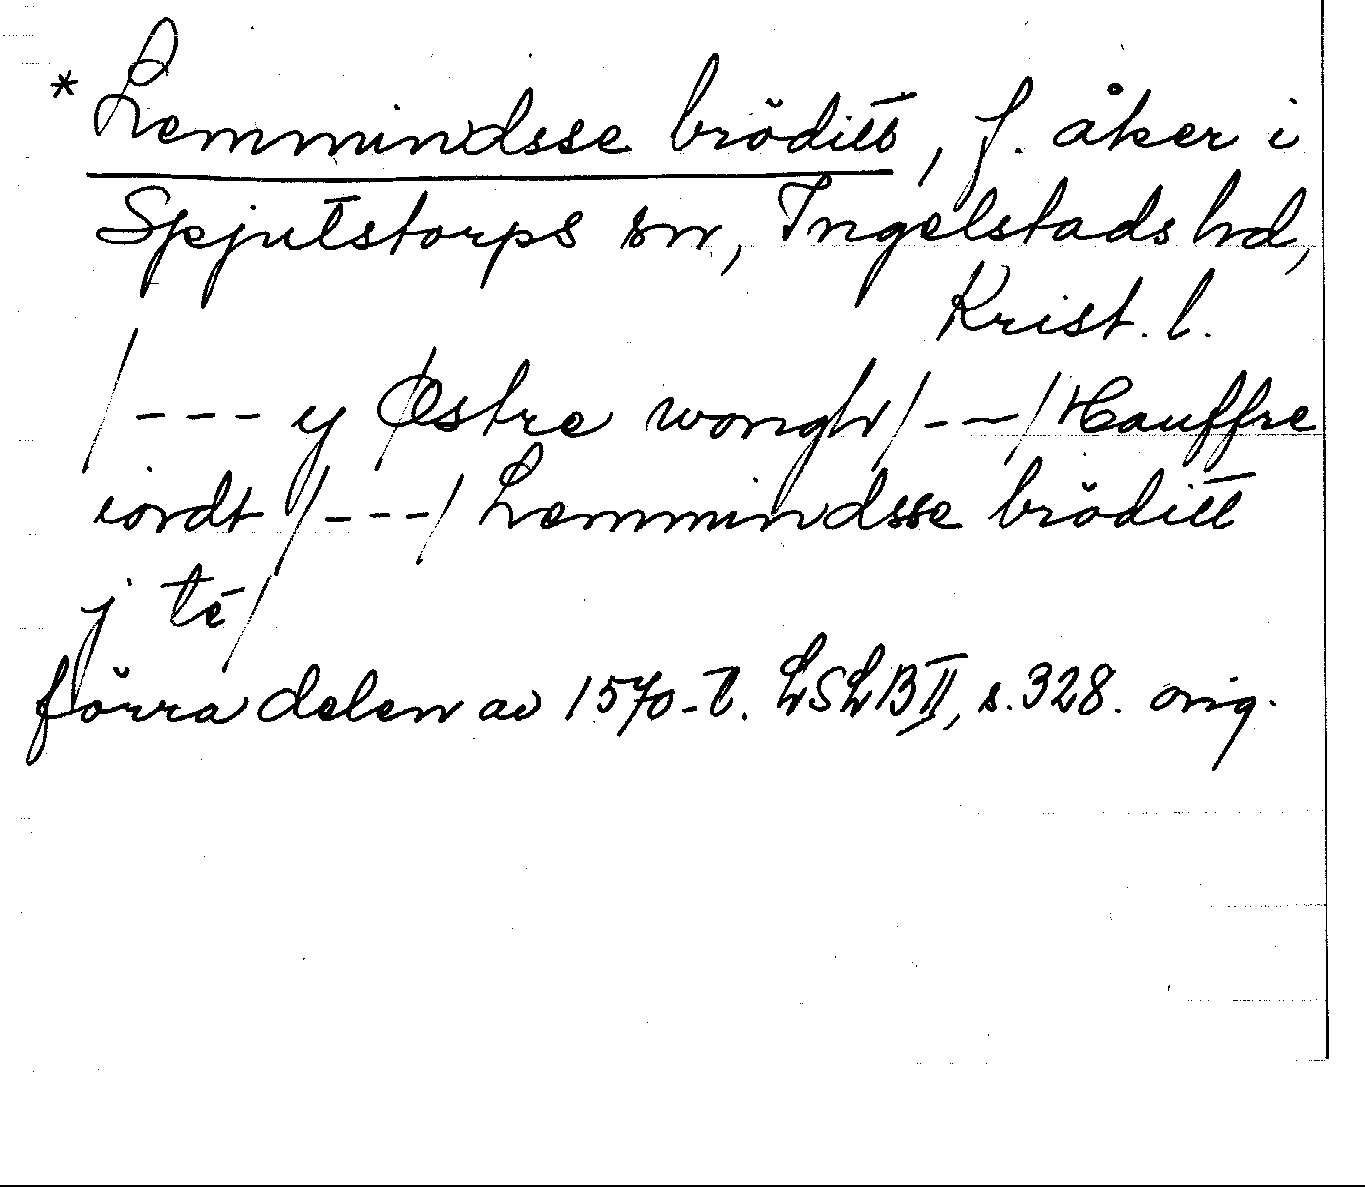 * Lemmindsse bröditt, f. åker i
Spjutstorps sn, Ingelstads hd,
Krist. l.
/--- y Østre wongh/---/Hauffre
iordt /---/ Lemmindsse bröditt
j té/
förra delen av 1570-t. LSLB II, s. 328. orig.